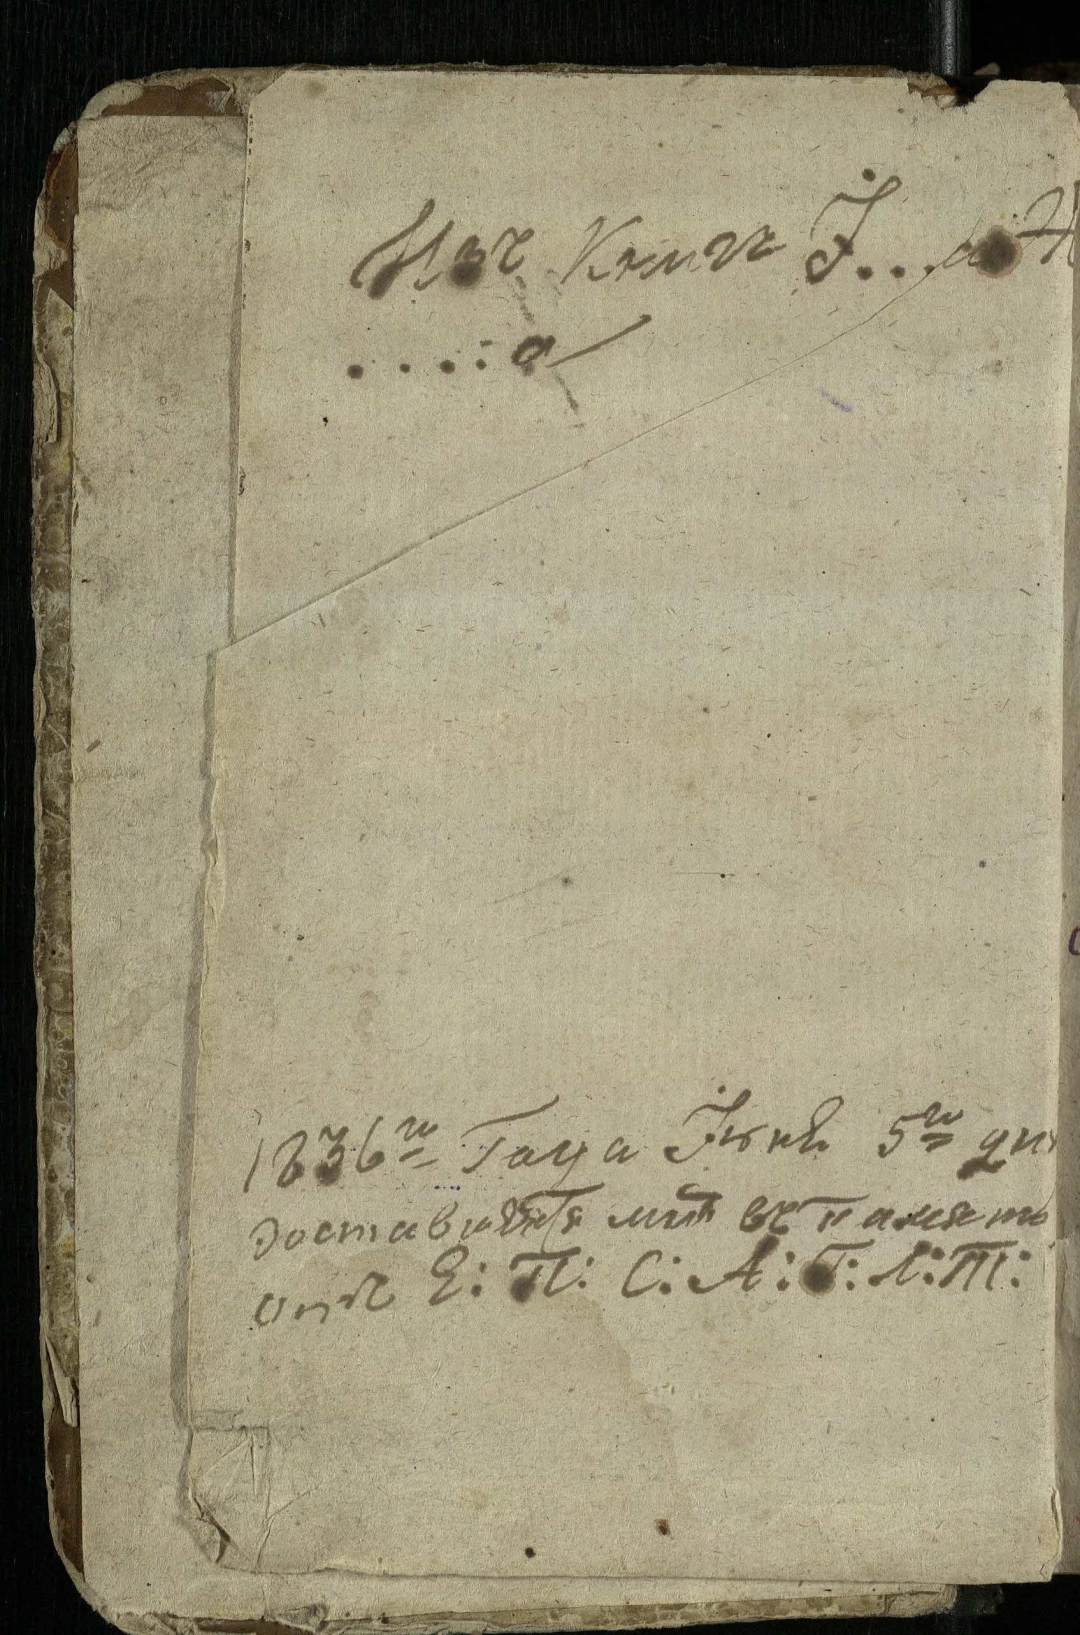 Изъ Книгъ І...а Н
.....а
1836го Года Іюня 5го дня
доставися мнѣ въ память
отъ Е: П: С: А: Г: Л: Т: